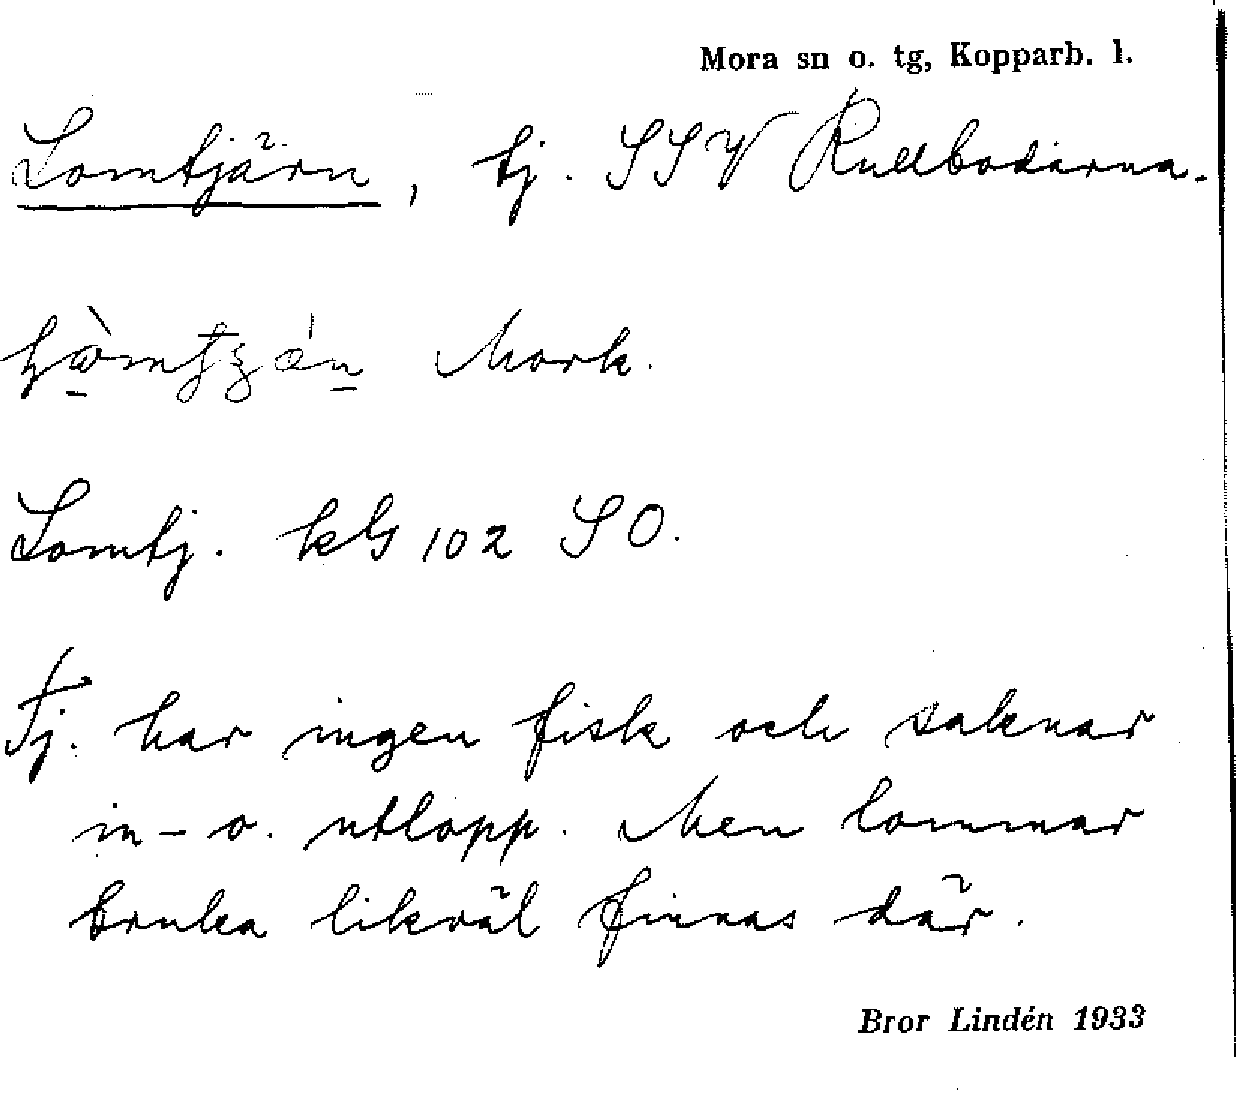 Mora sn o. tg, Kopparb. l.
Lomtjärn, tj. SSV Rullbodarna.
Mork.
Lomtj. kG 102 SO.
Tj. har ingen fisk och saknar
in- o. utlopp. Men lommar
bruka likväl finnas där.
Bror Lindén 1933